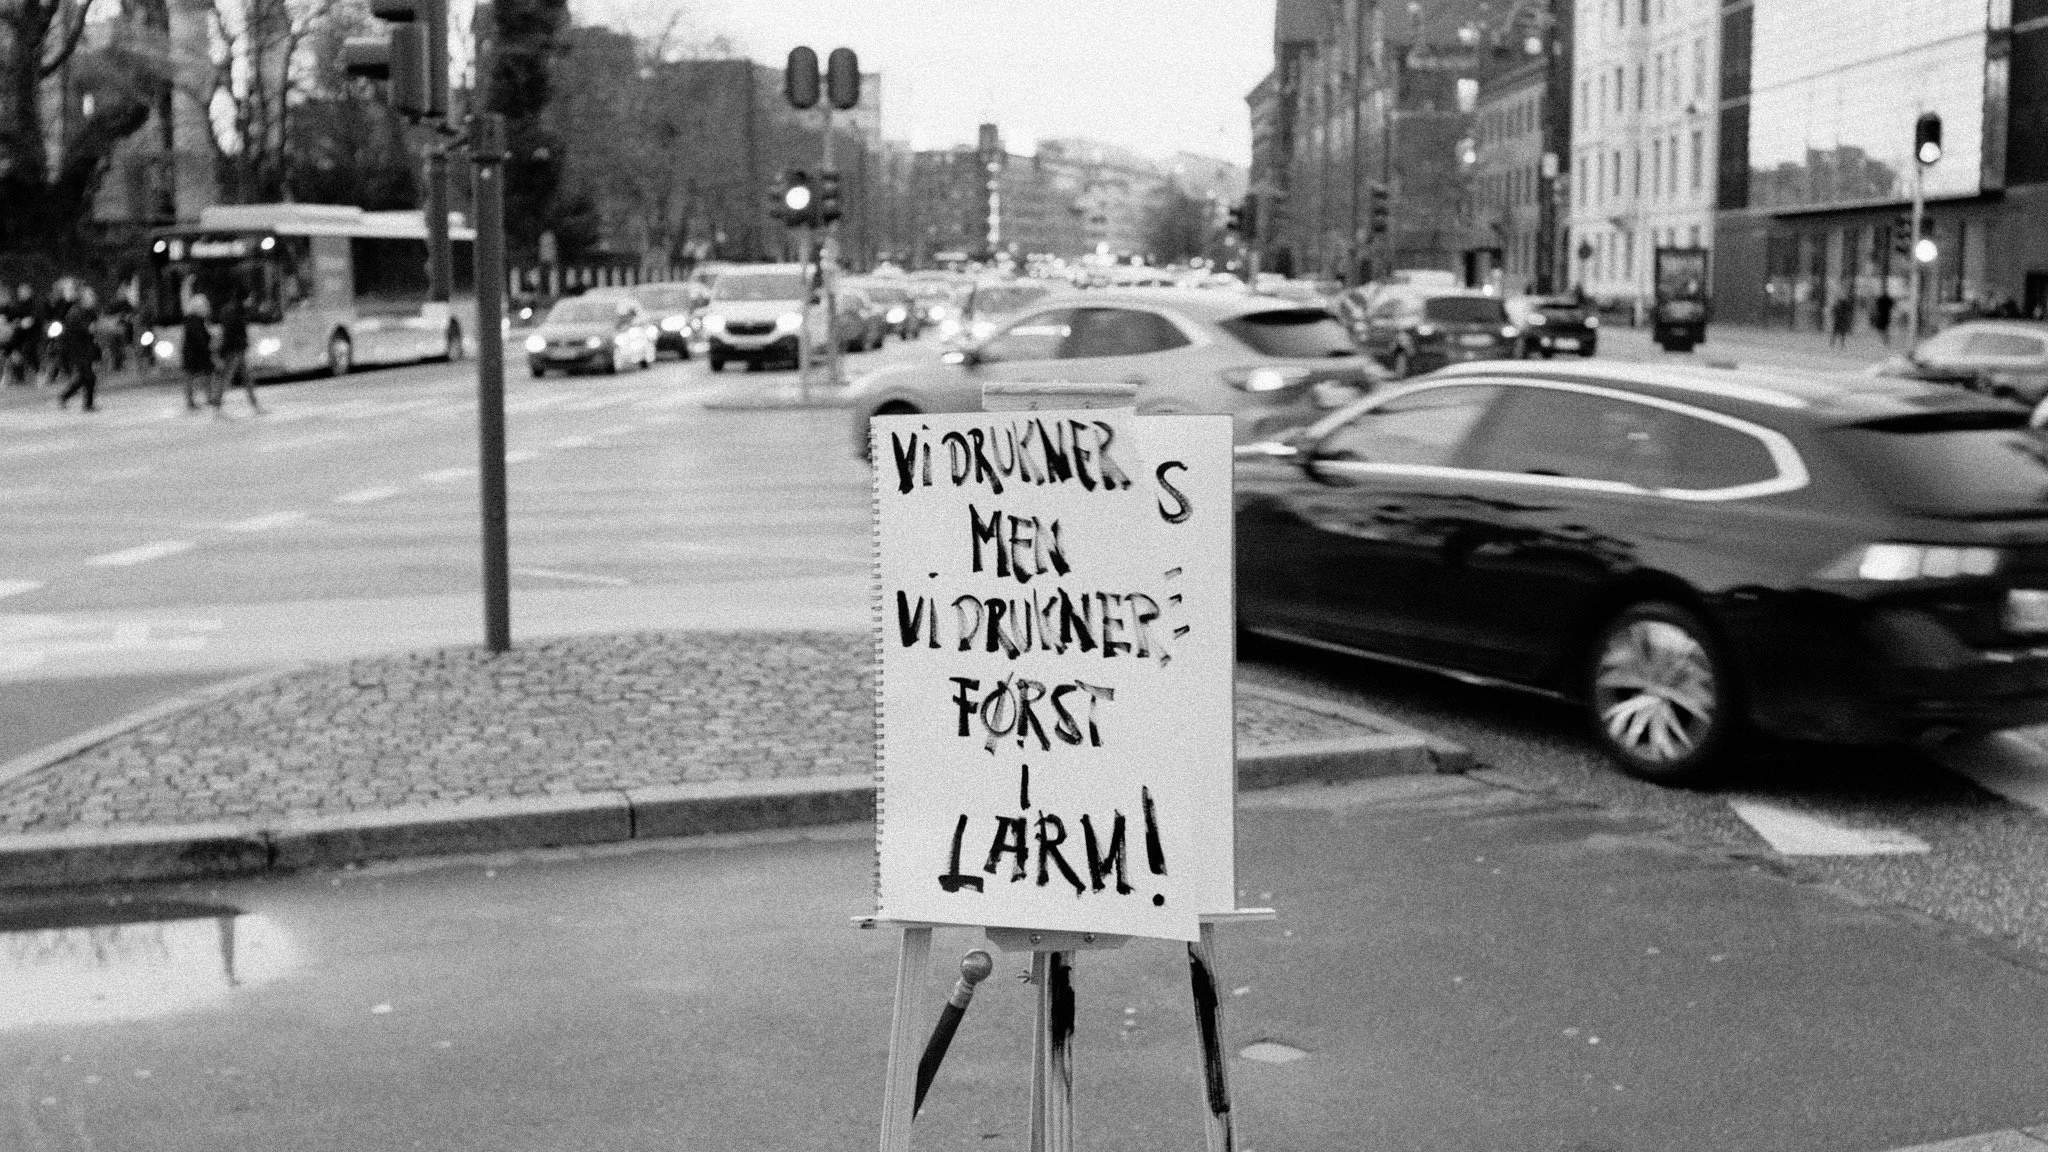 VI DRUKNER
S
MEN
VI DRUKNER
FØRST
I
LARM!